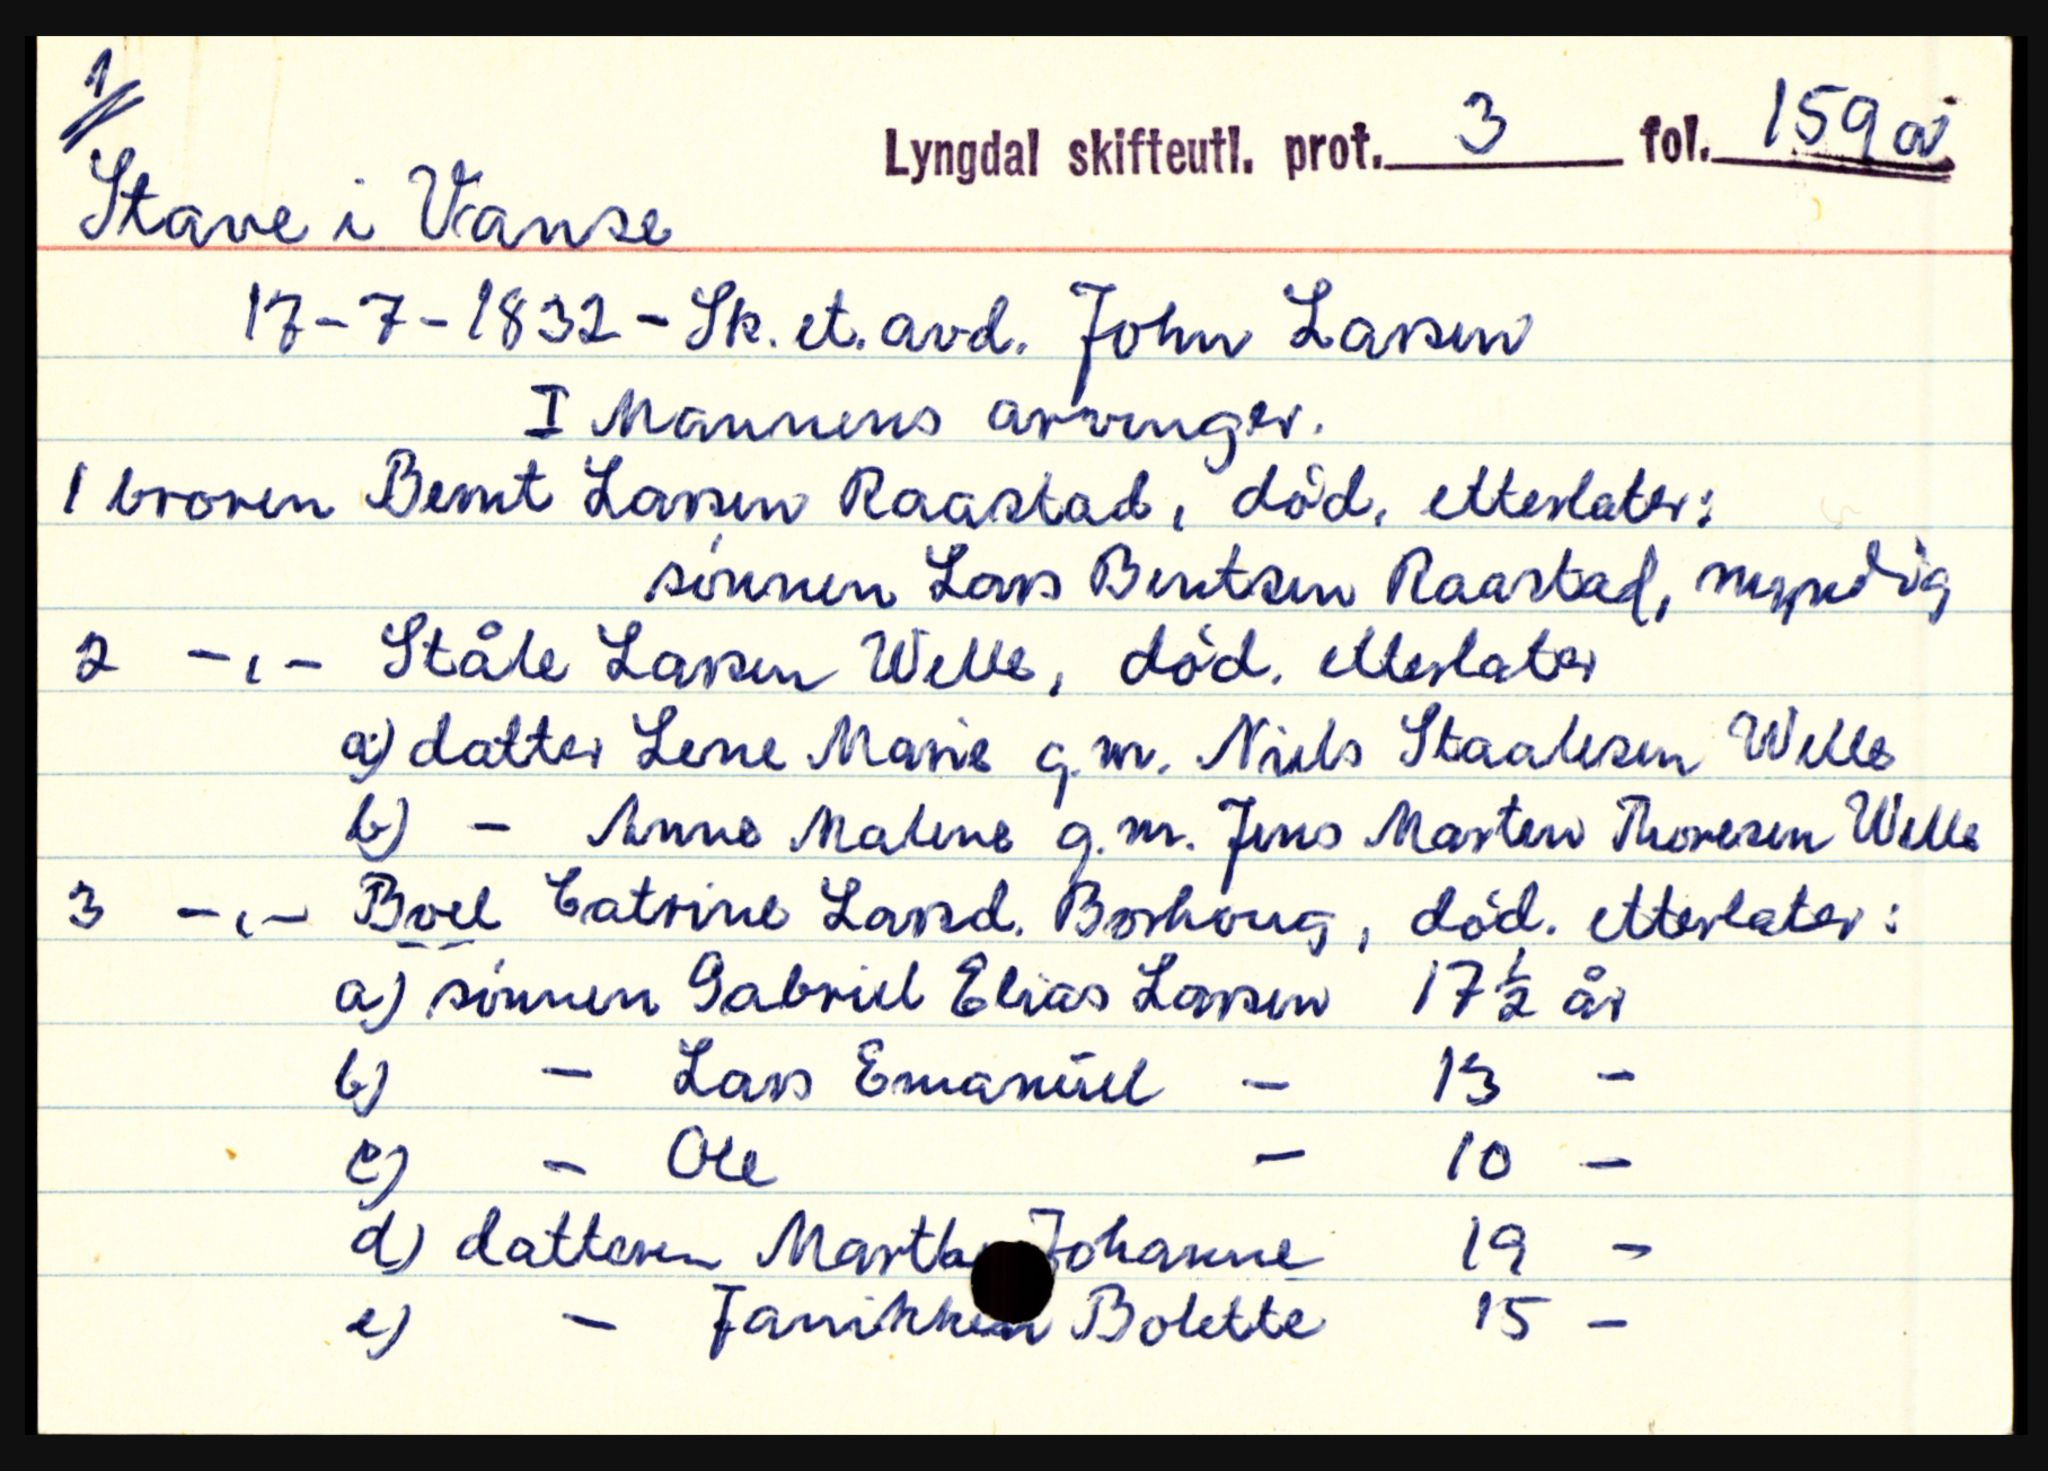 1/
Lyngdal skifteutl. prot. 3 fol. 159a
Stave i Vanse
17-7-1832 - Sk. et. avd. John Larsen
I Mannens arvinger.
1 broren Bernt Larsen Raastad, død, etterlater:
sønnen Lars Bentsen Raastad, myndig
2 -,- Ståle Larsen Welle, død. etterlater
a) datter Lene Marie g.m. Niels Staalesen Welle
b) - Anne Malene g.m. Jens Marten Thoresen Welle
3 -,- Boel Catrine Larsd. Borhoug, død. etterlater:
a) sønnen Gabriel Elias Larsen 17½ år
b) - Lars Emanuel - 13 -
c) - Ole - 10 -
d) datteren Marthe Johanne 19 -
e) - Janikken Bolette 15 -